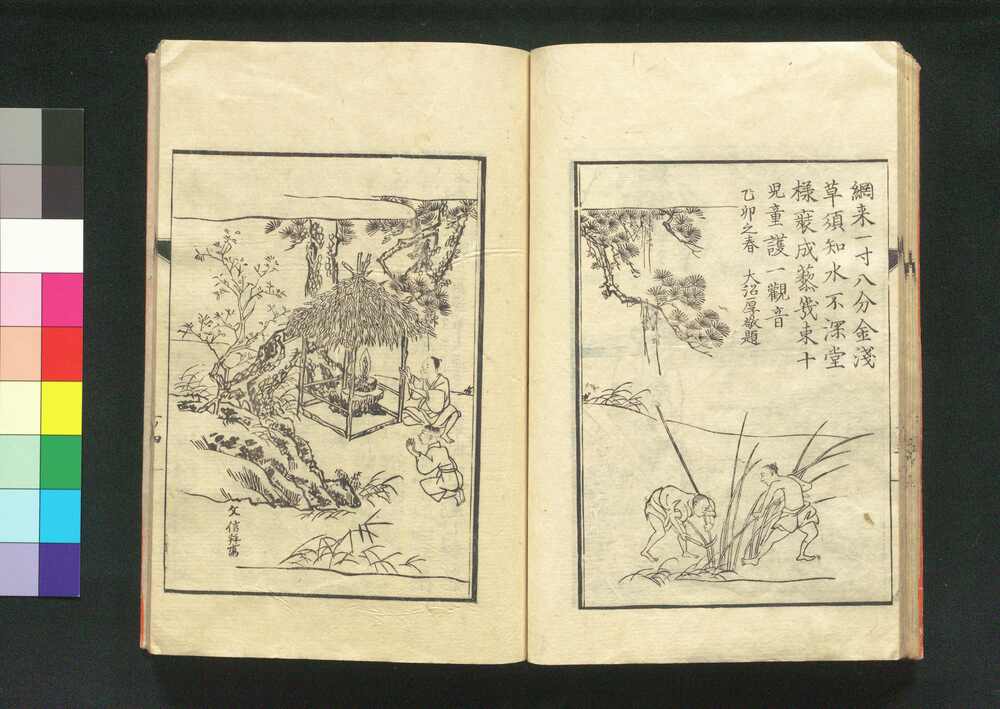 網来一寸八分金淺
草須知水不深堂
様裵成藜幾東十
児童護一觀音
乙卯之春　大沼厚敬題
文信